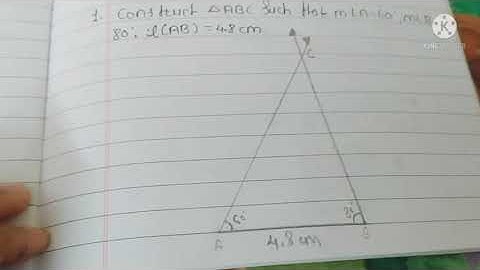 1. Construct △ABC Such that m∠A=60°, m∠B
80°, l(AB) = 4.8 cm
C
60°
80°
A
4.8 cm
B